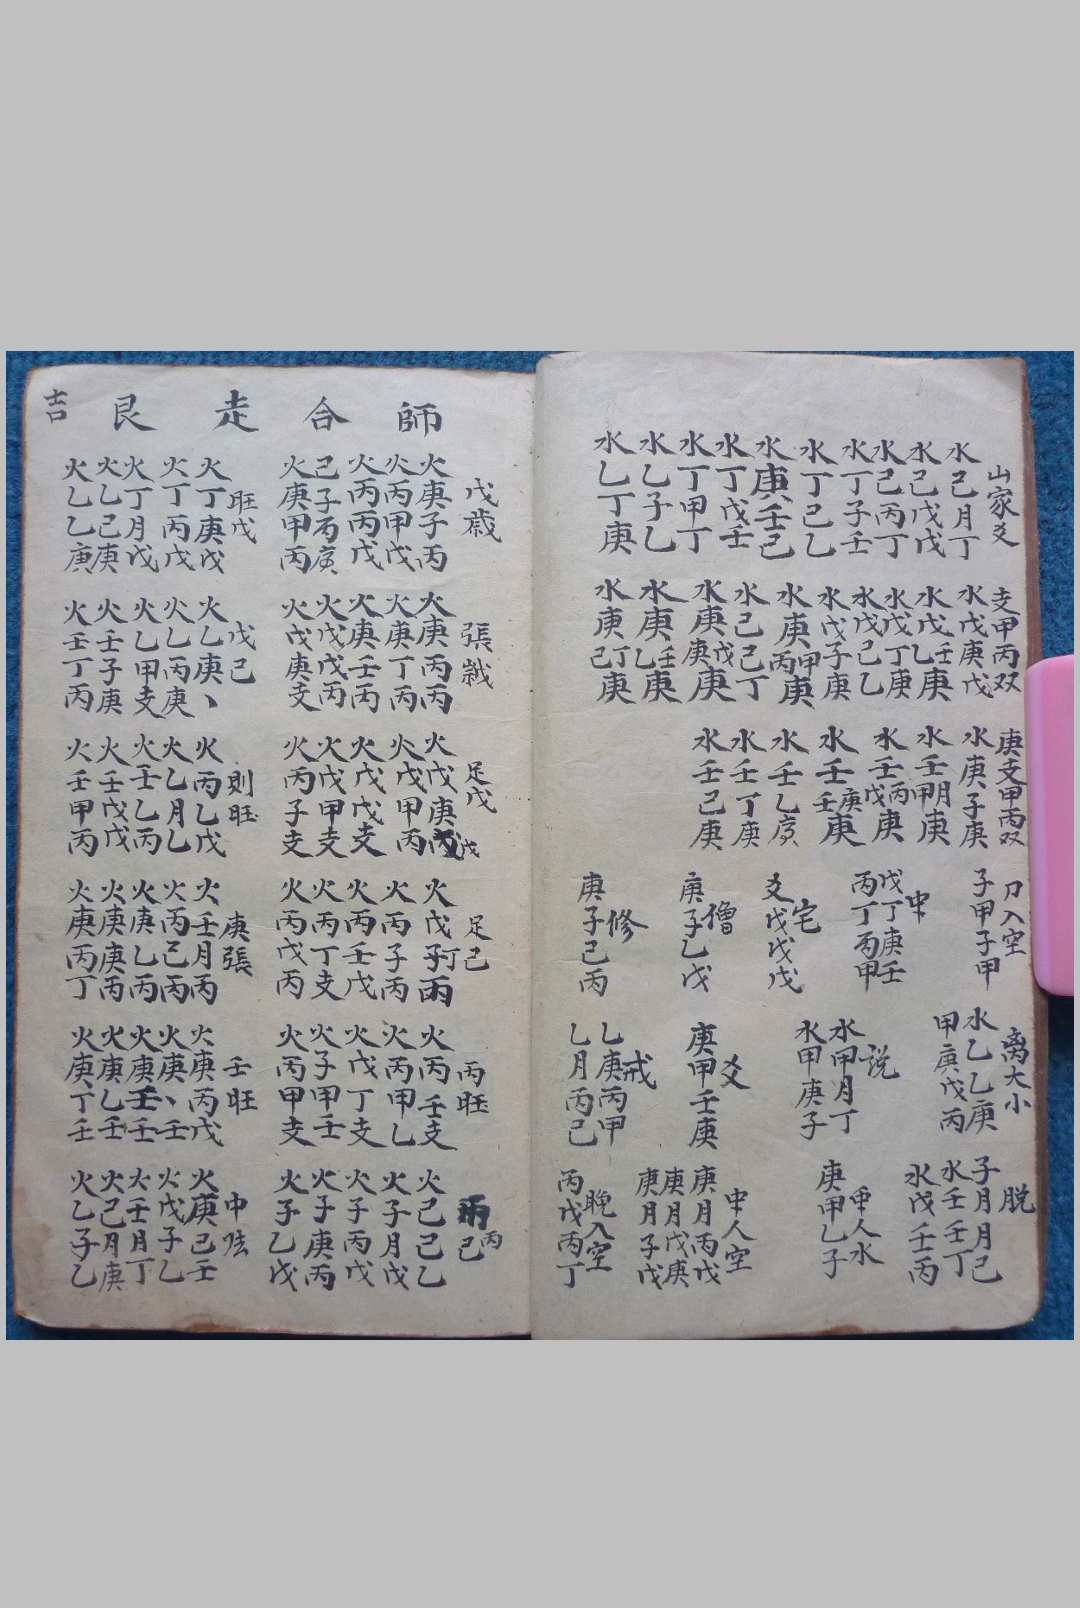 山家爻
水己月丁
水己戊戊
水己丙丁
水丁子壬
水丁己乙
水庚壬己
水丁戊壬
水丁甲丁
水乙子乙
水乙丁庚
支甲丙双
水戊庚戊
水戊乙壬庚
水戊丁庚
水戊己乙
水戊子庚
水庚丙甲庚
水己己丁
水庚庚戊庚
水庚乙壬庚
水庚己丁庚
庚支甲丙双
水庚子庚
水壬甲月庚
水壬戊丙庚
水壬壬庚庚
水壬乙庚
水壬丁庚
水壬己庚
刀入空
子甲子甲
中
戊丁庚壬
丙丁丙甲
宅
爻戊戊戊
僧
庚子乙戊
修
庚子己丙
离大小
水乙乙庚
甲庚戊丙
说
水甲月丁
水甲庚子
爻
庚甲壬庚
戒
乙庚丙甲
乙月丙己
脱
子月月己
水壬壬丁
水戊壬丙
中人水
庚甲乙子
中人空
庚月丙戊
庚月戊庚
庚月子戊
晚入空
丙戊丙丁
師合走艮吉
戊歳
火庚子丙
火丙甲戊
火丙丙戊
己子丙庚
火庚甲丙
旺戊
火丁庚戊
火丁丙戊
火丁月戊
火乙己庚
火乙乙庚
張
火庚丙丙
火庚丁丙
火庚壬丙
火戊戊丙
火戊庚支
戊己
火乙庚、
火乙丙庚
火乙甲支
火壬子庚
火壬丁丙
足戊
火戊庚戊
火戊甲丙
火戊戊支
火戊甲支
火丙子支
則旺
火丙乙戊
火乙月乙
火壬乙丙
火壬戊戊
火壬甲丙
足己
火戊丁丙
火丙子丙
火丙壬戊
火丙丁支
火丙戊丙
庚張
火壬月丙
火丙己丙
火庚乙丙
火庚庚丙
火庚丙丁
丙旺
火丙壬支
火丙甲乙
火戊丁支
火子甲壬
火丙甲支
壬旺
火庚丙戊
火庚、壬
火庚壬壬
火庚乙壬
火庚丁壬
丙己
火己己乙
火子月戊
火子丙戊
火子庚丙
火子乙戊
中
火庚己壬
火戊子乙
火壬月丁
火己月庚
火乙子乙